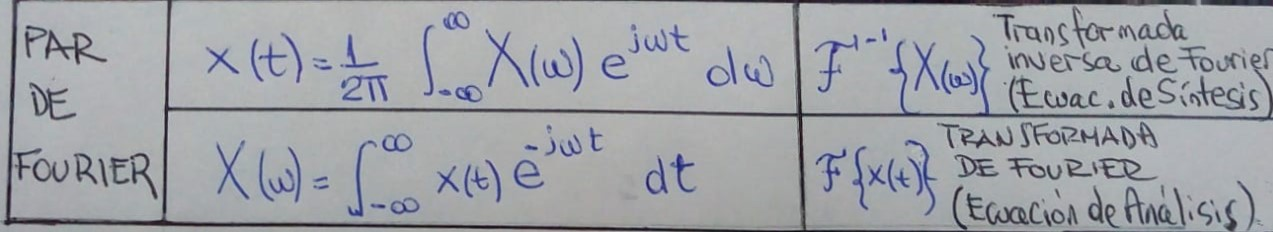 PAR
DE
FOURIER
x(t) = 1/2π ∫_{-∞}^{∞} X(ω) e^{jωt} dω
F^{-1}{X(ω)}
Transformada
inversa de Fourier
(Ecuac. de Síntesis)
X(ω) = ∫_{-∞}^{∞} x(t) e^{-jωt} dt
F{x(t)}
TRANSFORMADA
DE FOURIER
(Ecuación de Análisis).